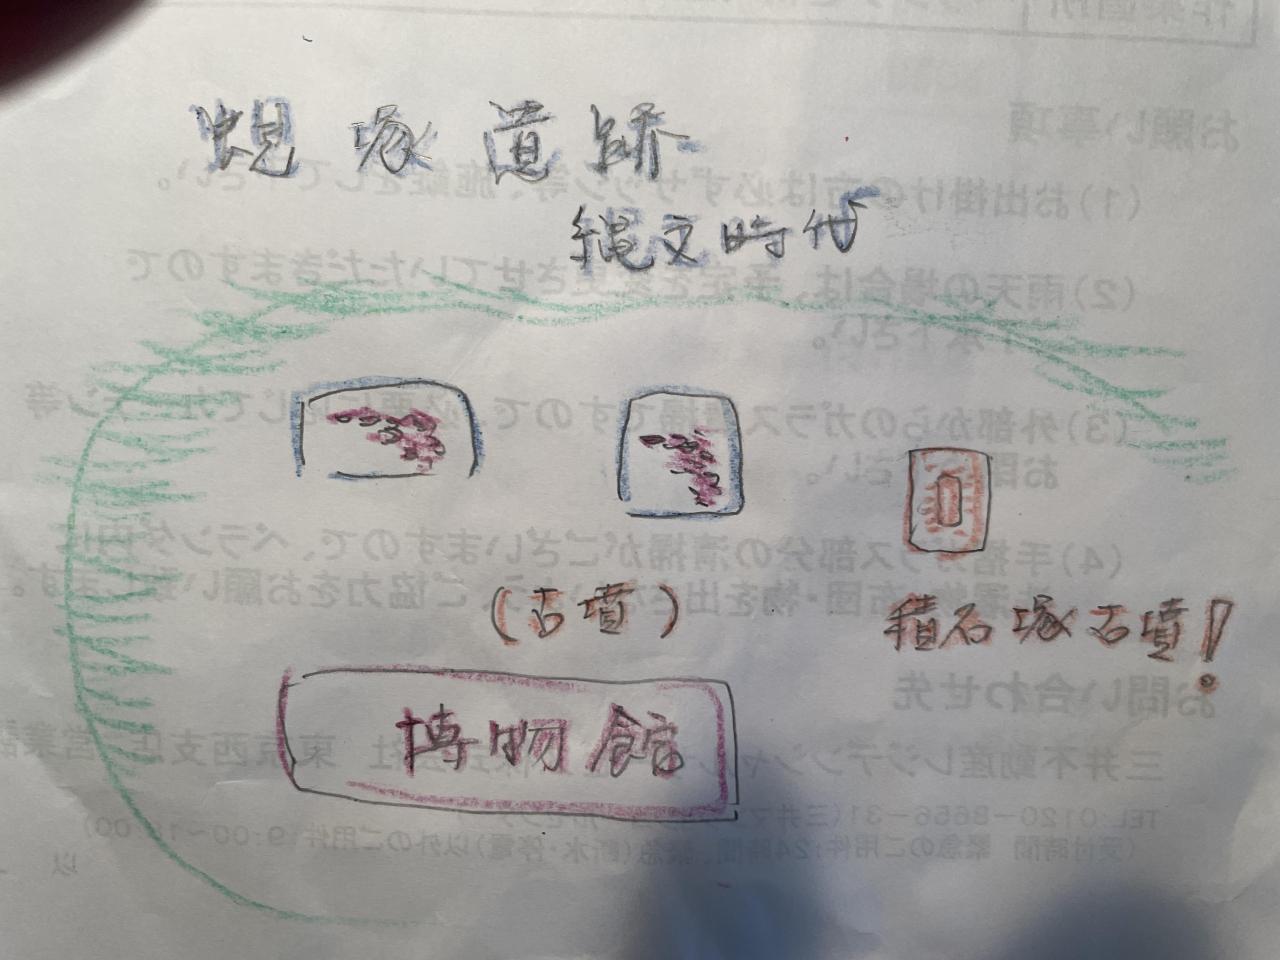 蜆塚遺跡
縄文時代
(古墳)
積石塚古墳!
博物館